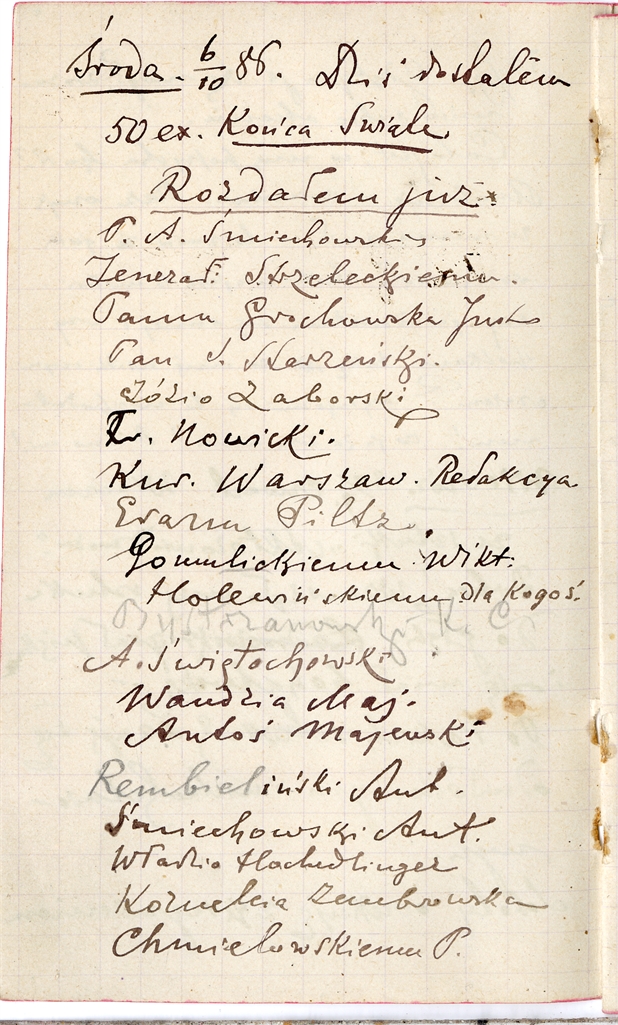 Środa. 6/10 86. Dziś dostałem
50 ex. Końca Świata.
Rozdałem już:
P. A. Śmiechowski
Jenerał. Strzeleckiemu.
Panna Grochowska Just
Pan S. Starzeński.
Józio Zaborski
Fr. Nowicki.
Kur. Warszaw. Redakcya
Erazm Piltz.
Gomulickiemu Wikt.
Holewińskiemu dla kogoś.
Bystrzanowski K. C.
A. Świętochowski
Wandzia Maj.
Antoś Majewski
Rembieliński Ant.
Śmiechowski Ant.
Władzio Hochedlinger
Kornelcia Zembrowska
Chmielowskiemu P.